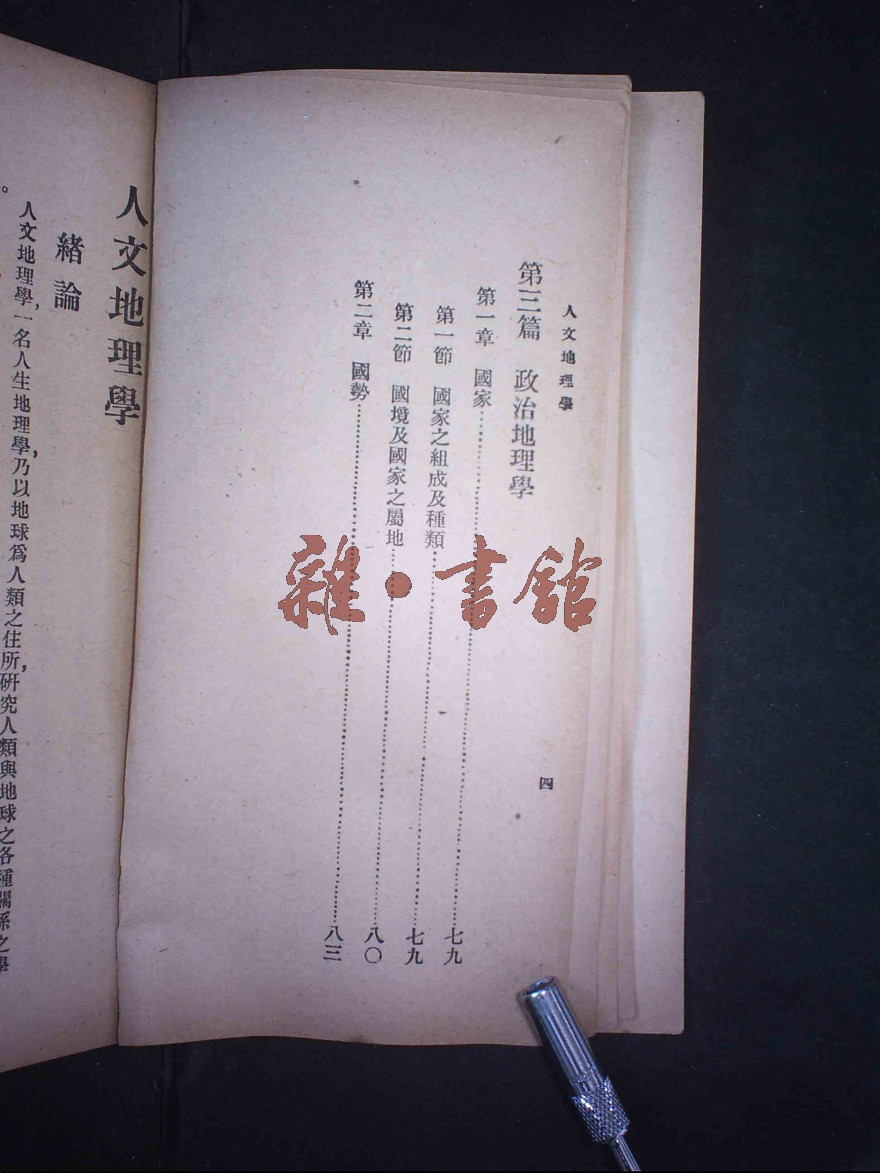 人文地理學
第三篇 政治地理學
第一章 國家……七九
第一節 國家之組成及種類……七九
第二節 國境及國家之屬地……八〇
第二章 國勢……八三
四
雜·書館
人文地理學
緒論
人文地理學,一名人生地理學,乃以地球爲人類之住所,研究人類與地球之各種關係之學
。